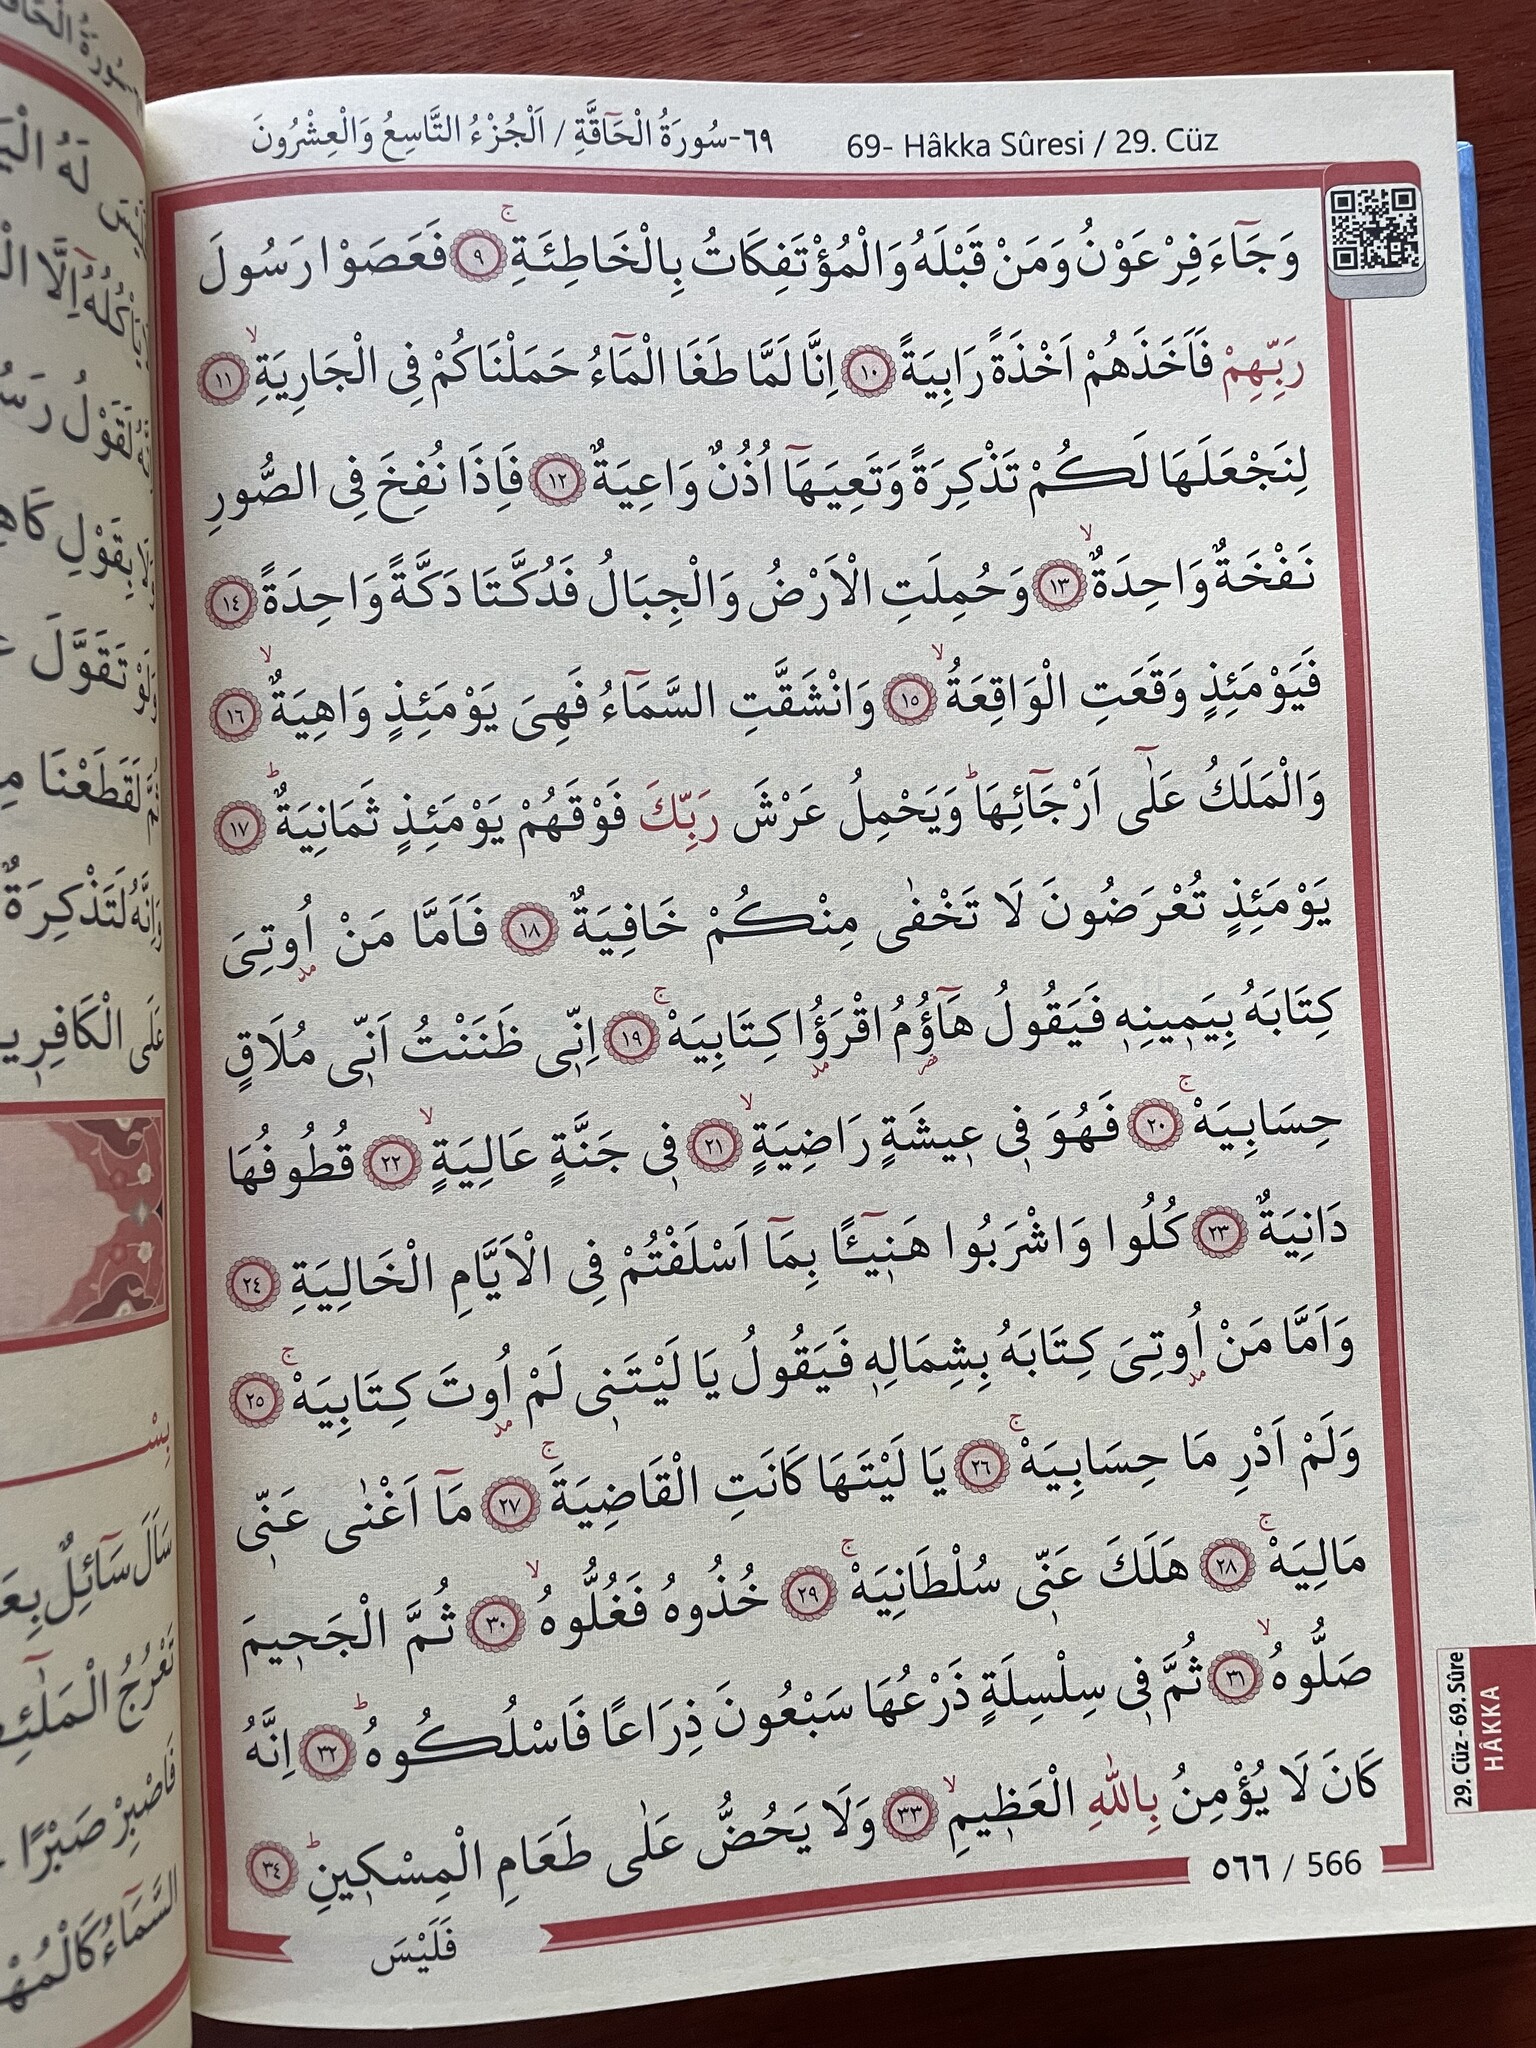 ٦٩-سُورَةُ الْحَٓاقَّةِ / اَلْجُزْءُ التَّاسِعُ وَالْعِشْرُونَ 69- Hâkka Sûresi / 29. Cüz
وَجَٓاءَ فِرْعَوْنُ وَمَنْ قَبْلَهُ وَالْمُؤْتَفِكَاتُ بِالْخَاطِئَةِۚ ﴿٩﴾ فَعَصَوْا رَسُولَ
رَبِّهِمْ فَاَخَذَهُمْ اَخْذَةً رَابِيَةً ﴿١٠﴾ اِنَّا لَمَّا طَغَا الْمَٓاءُ حَمَلْنَاكُمْ فِى الْجَارِيَةِۙ ﴿١١﴾
لِنَجْعَلَهَا لَكُمْ تَذْكِرَةً وَتَعِيَهَٓا اُذُنٌ وَاعِيَةٌ ﴿١٢﴾ فَاِذَا نُفِخَ فِى الصُّورِ
نَفْخَةٌ وَاحِدَةٌۙ ﴿١٣﴾ وَحُمِلَتِ الْاَرْضُ وَالْجِبَالُ فَدُكَّتَا دَكَّةً وَاحِدَةً ﴿١٤﴾
فَيَوْمَئِذٍ وَقَعَتِ الْوَاقِعَةُۙ ﴿١٥﴾ وَانْشَقَّتِ السَّمَٓاءُ فَهِىَ يَوْمَئِذٍ وَاهِيَةٌۙ ﴿١٦﴾
وَالْمَلَكُ عَلٰٓى اَرْجَٓائِهَاۜ وَيَحْمِلُ عَرْشَ رَبِّكَ فَوْقَهُمْ يَوْمَئِذٍ ثَمَانِيَةٌۜ ﴿١٧﴾
يَوْمَئِذٍ تُعْرَضُونَ لَا تَخْفٰى مِنْكُمْ خَافِيَةٌ ﴿١٨﴾ فَاَمَّا مَنْ اُوتِىَ
كِتَابَهُ بِيَمٖينِهٖ فَيَقُولُ هَٓاؤُمُ اقْرَؤُا كِتَابِيَهْۚ ﴿١٩﴾ اِنّٖى ظَنَنْتُ اَنّٖى مُلَاقٍ
حِسَابِيَهْۚ ﴿٢٠﴾ فَهُوَ فٖى عٖيشَةٍ رَاضِيَةٍۙ ﴿٢١﴾ فٖى جَنَّةٍ عَالِيَةٍۙ ﴿٢٢﴾ قُطُوفُهَا
دَانِيَةٌ ﴿٢٣﴾ كُلُوا وَاشْرَبُوا هَنٖٓيـًٔا بِمَٓا اَسْلَفْتُمْ فِى الْاَيَّامِ الْخَالِيَةِ ﴿٢٤﴾
وَاَمَّا مَنْ اُوتِىَ كِتَابَهُ بِشِمَالِهٖ فَيَقُولُ يَا لَيْتَنٖى لَمْ اُوتَ كِتَابِيَهْۚ ﴿٢٥﴾
وَلَمْ اَدْرِ مَا حِسَابِيَهْۚ ﴿٢٦﴾ يَا لَيْتَهَا كَانَتِ الْقَاضِيَةَۚ ﴿٢٧﴾ مَٓا اَغْنٰى عَنّٖى
مَالِيَهْۚ ﴿٢٨﴾ هَلَكَ عَنّٖى سُلْطَانِيَهْۚ ﴿٢٩﴾ خُذُوهُ فَغُلُّوهُۙ ﴿٣٠﴾ ثُمَّ الْجَحٖيمَ
صَلُّوهُۙ ﴿٣١﴾ ثُمَّ فٖى سِلْسِلَةٍ ذَرْعُهَا سَبْعُونَ ذِرَاعًا فَاسْلُكُوهُۜ ﴿٣٢﴾ اِنَّهُ
كَانَ لَا يُؤْمِنُ بِاللّٰهِ الْعَظٖيمِۙ ﴿٣٣﴾ وَلَا يَحُضُّ عَلٰى طَعَامِ الْمِسْكٖينِۜ ﴿٣٤﴾
٥٦٦ / 566
فَلَيْسَ
29. Cüz - 69. Sûre
HÂKKA